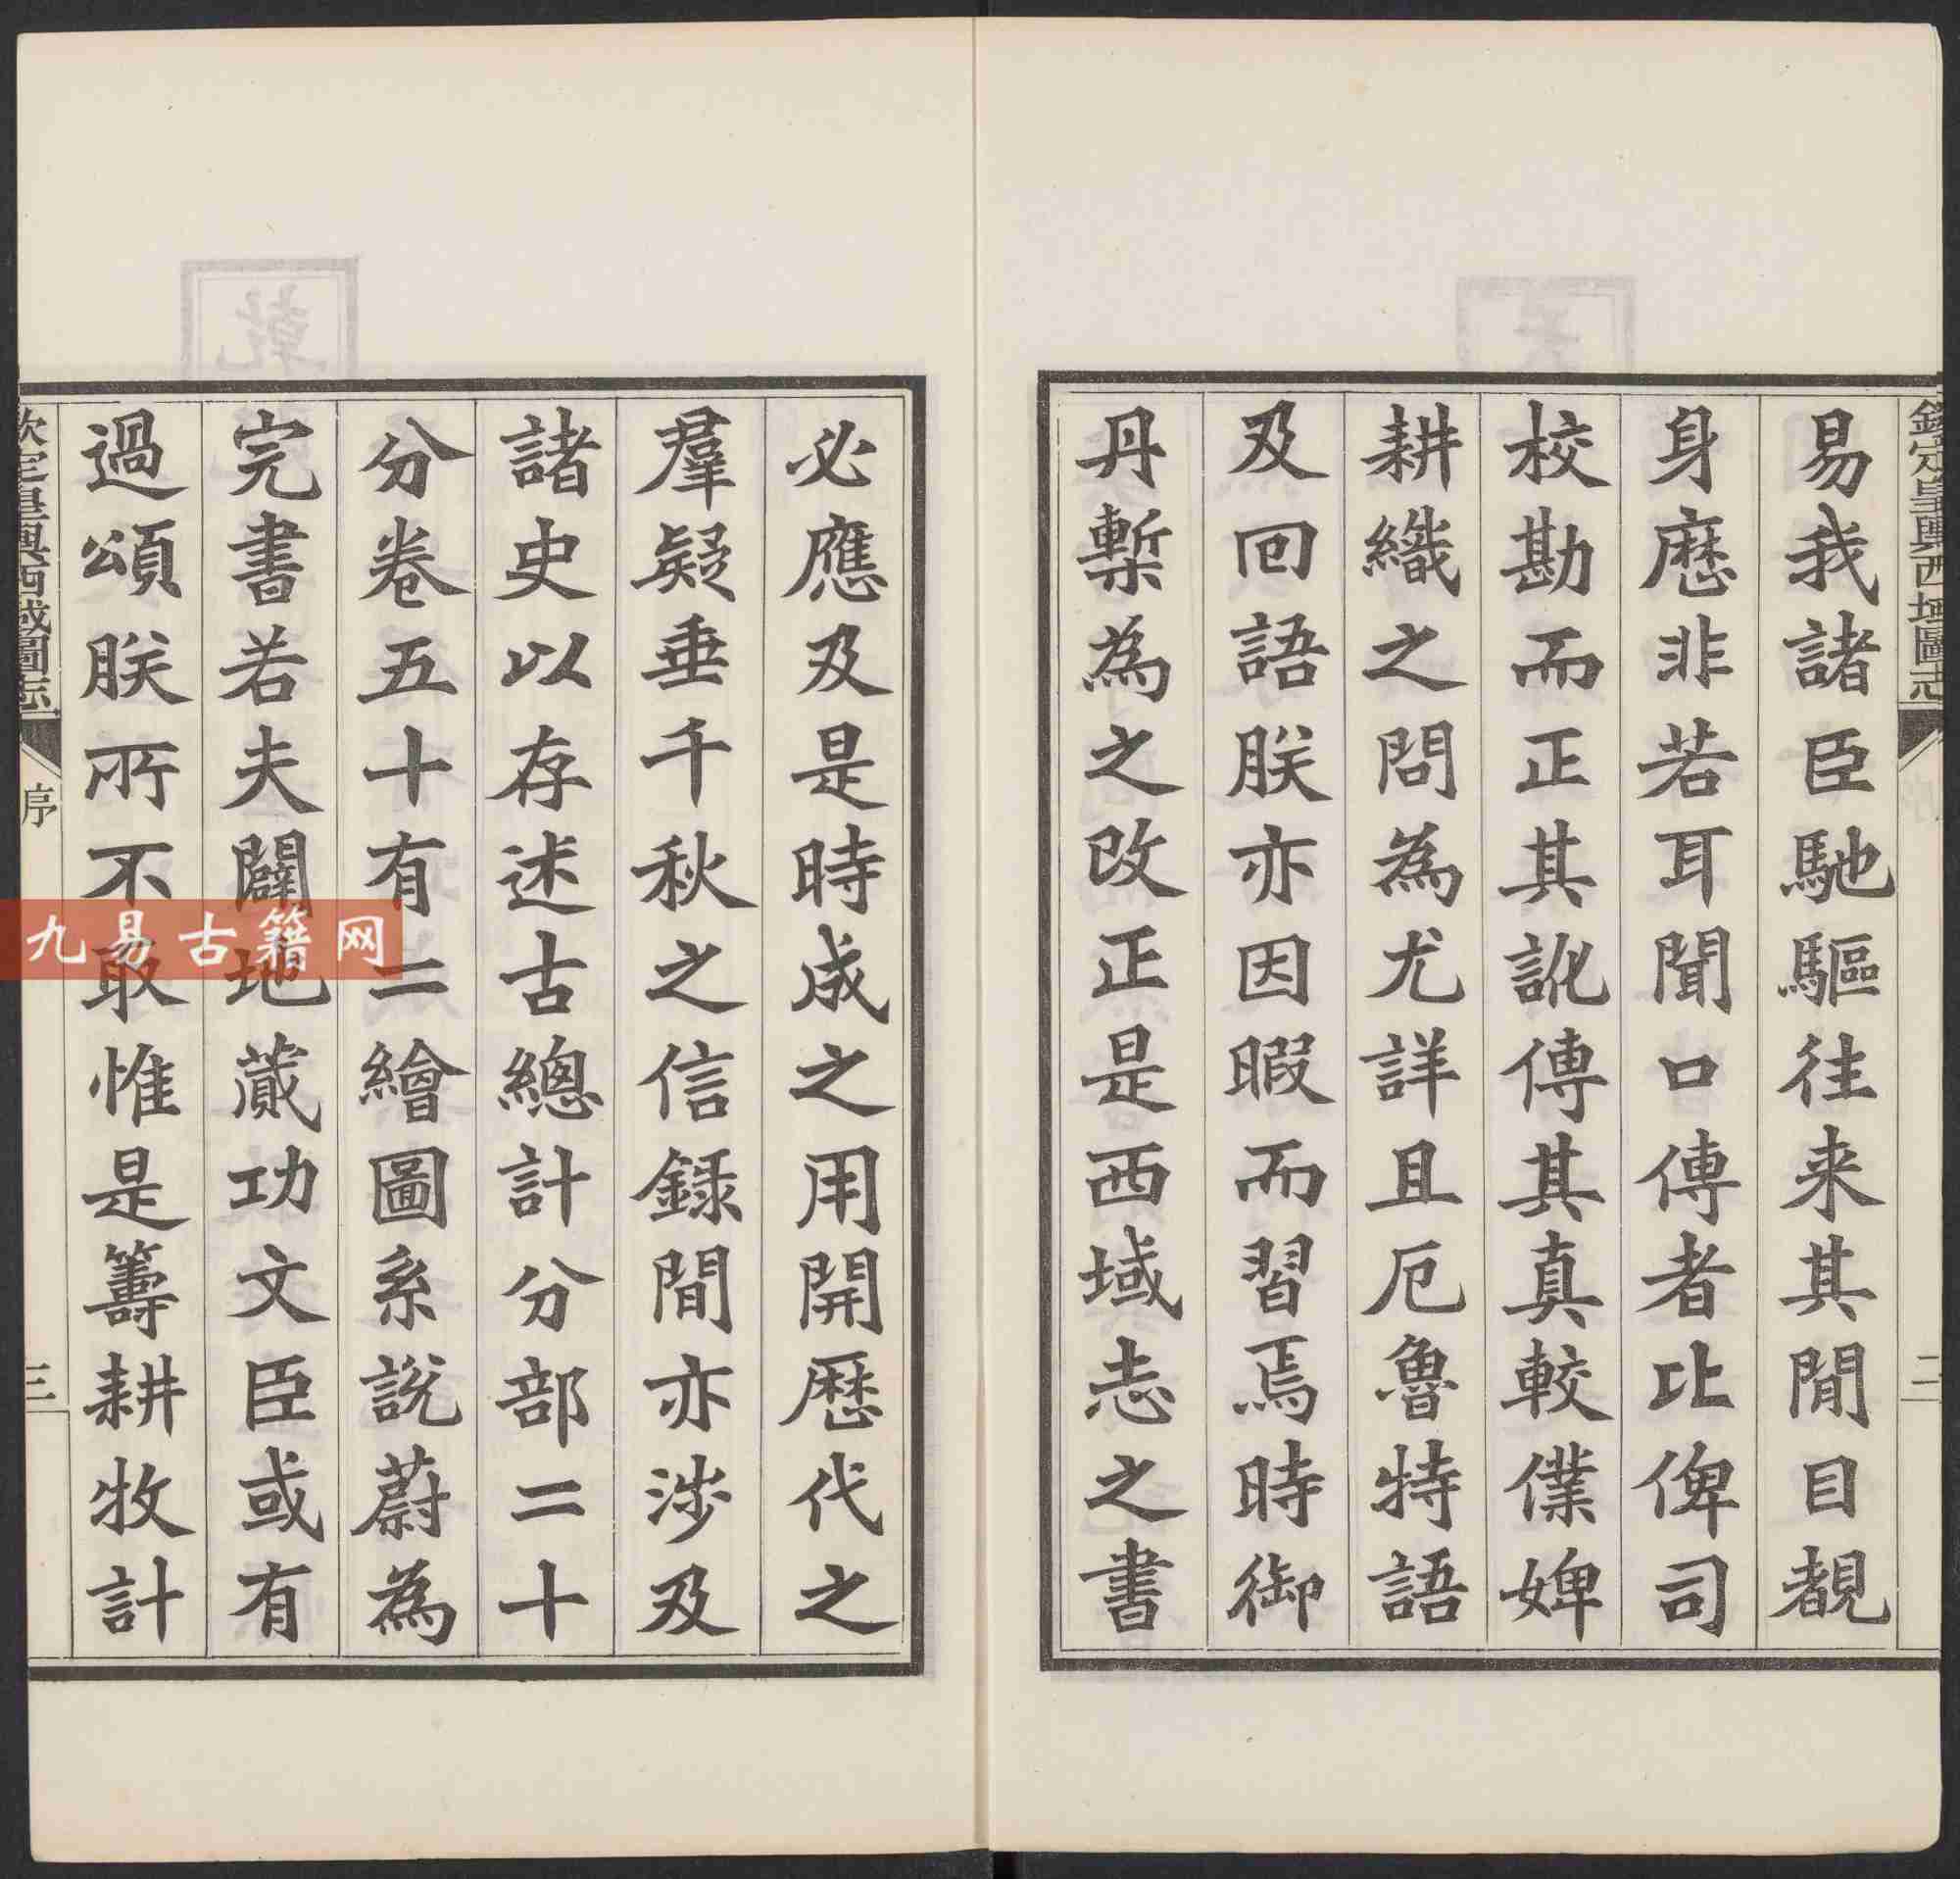 欽定皇輿西域圖志
二
易我諸臣馳驅往来其閒目覩
身歴非若耳聞口傳者比俾司
校勘而正其訛傳其真較僕婢
耕織之問為尤詳且厄魯特語
及回語朕亦因暇而習焉時御
丹槧為之改正是西域志之書
必應及是時成之用開歴代之
羣疑垂千秋之信録間亦涉及
諸史以存述古總計分部二十
分卷五十有二繪圖系説蔚為
完書若夫闢地蕆功文臣或有
過頌朕所不取惟是籌耕牧計
欽定皇輿西域圖志
序
三
九易古籍网